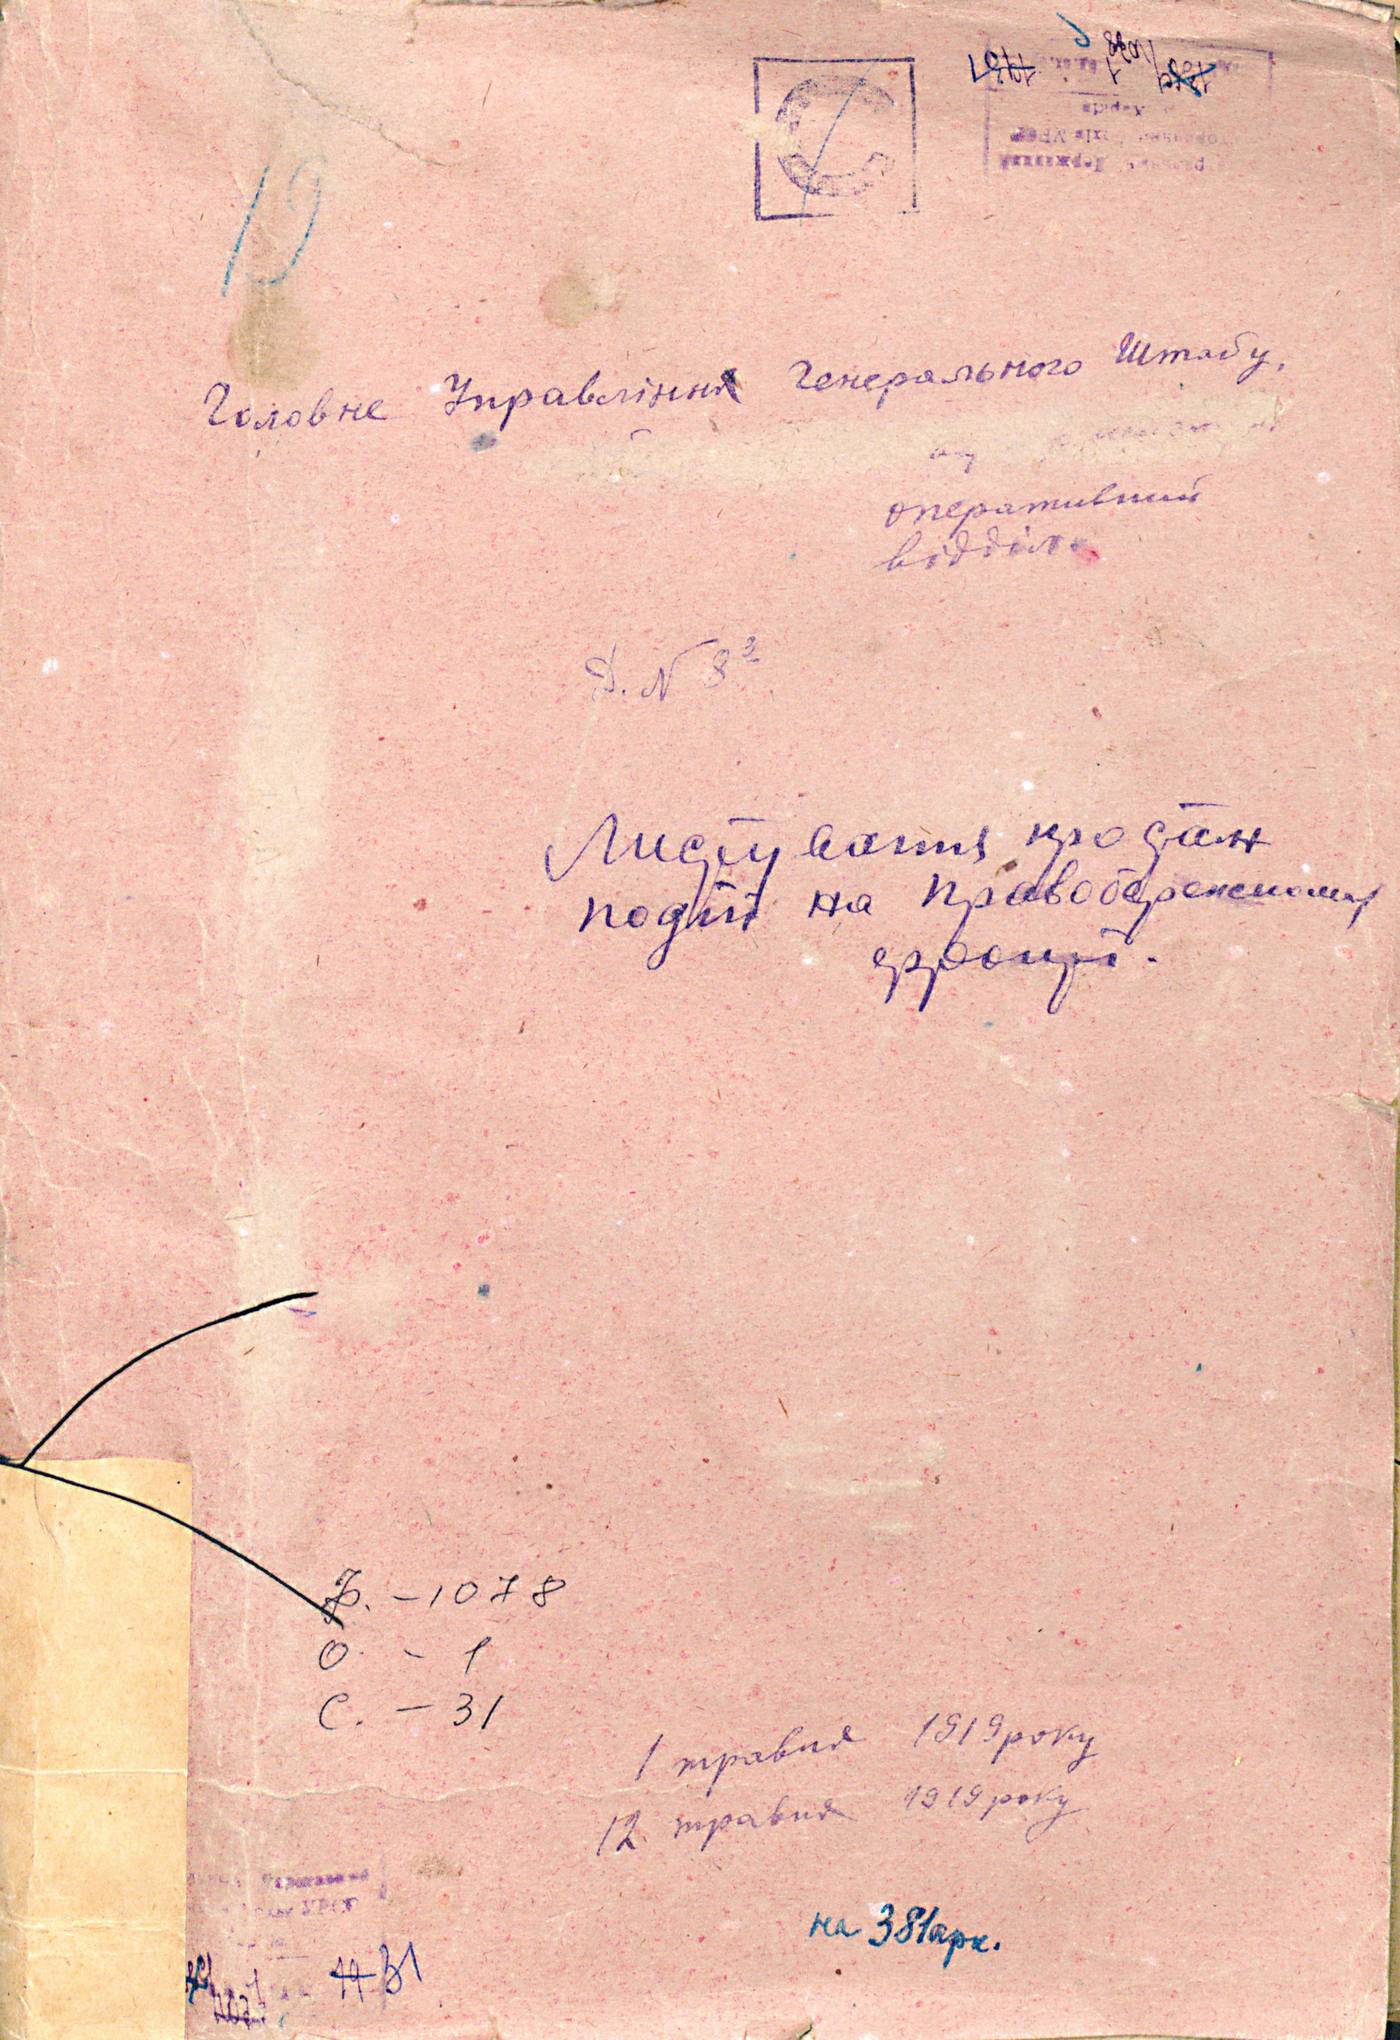 19
Головне Управління Генерального Штабу,
оперативний
відділ
Д. № 8
Листування про стан
подій на правобережному
фронті.
Ф. – 1078
О. – 1
С. – 31
1 травня 1919 року
12 травня 1919 року
на 381 арк.
УРСР
31